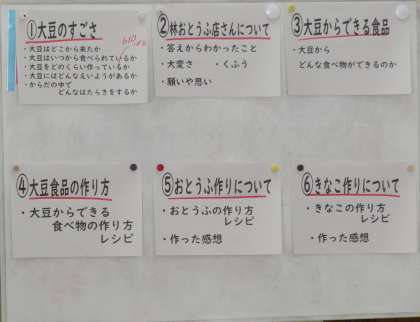 ①大豆のすごさ
・大豆はどこから来たか
・大豆はいつから食べられているか
・大豆をどのくらい作っているか
・大豆にはどんなえいようがあるか
・からだの中で
どんなはたらきをするか
②林おとうふ店さんについて
・答えからわかったこと
・大変さ ・くふう
・願いや思い
③大豆からできる食品
・大豆から
どんな食べ物ができるのか
④大豆食品の作り方
・大豆からできる
食べ物の作り方
レシピ
⑤おとうふ作りについて
・おとうふの作り方
レシピ
・作った感想
⑥きなこ作りについて
・きなこの作り方
レシピ
・作った感想